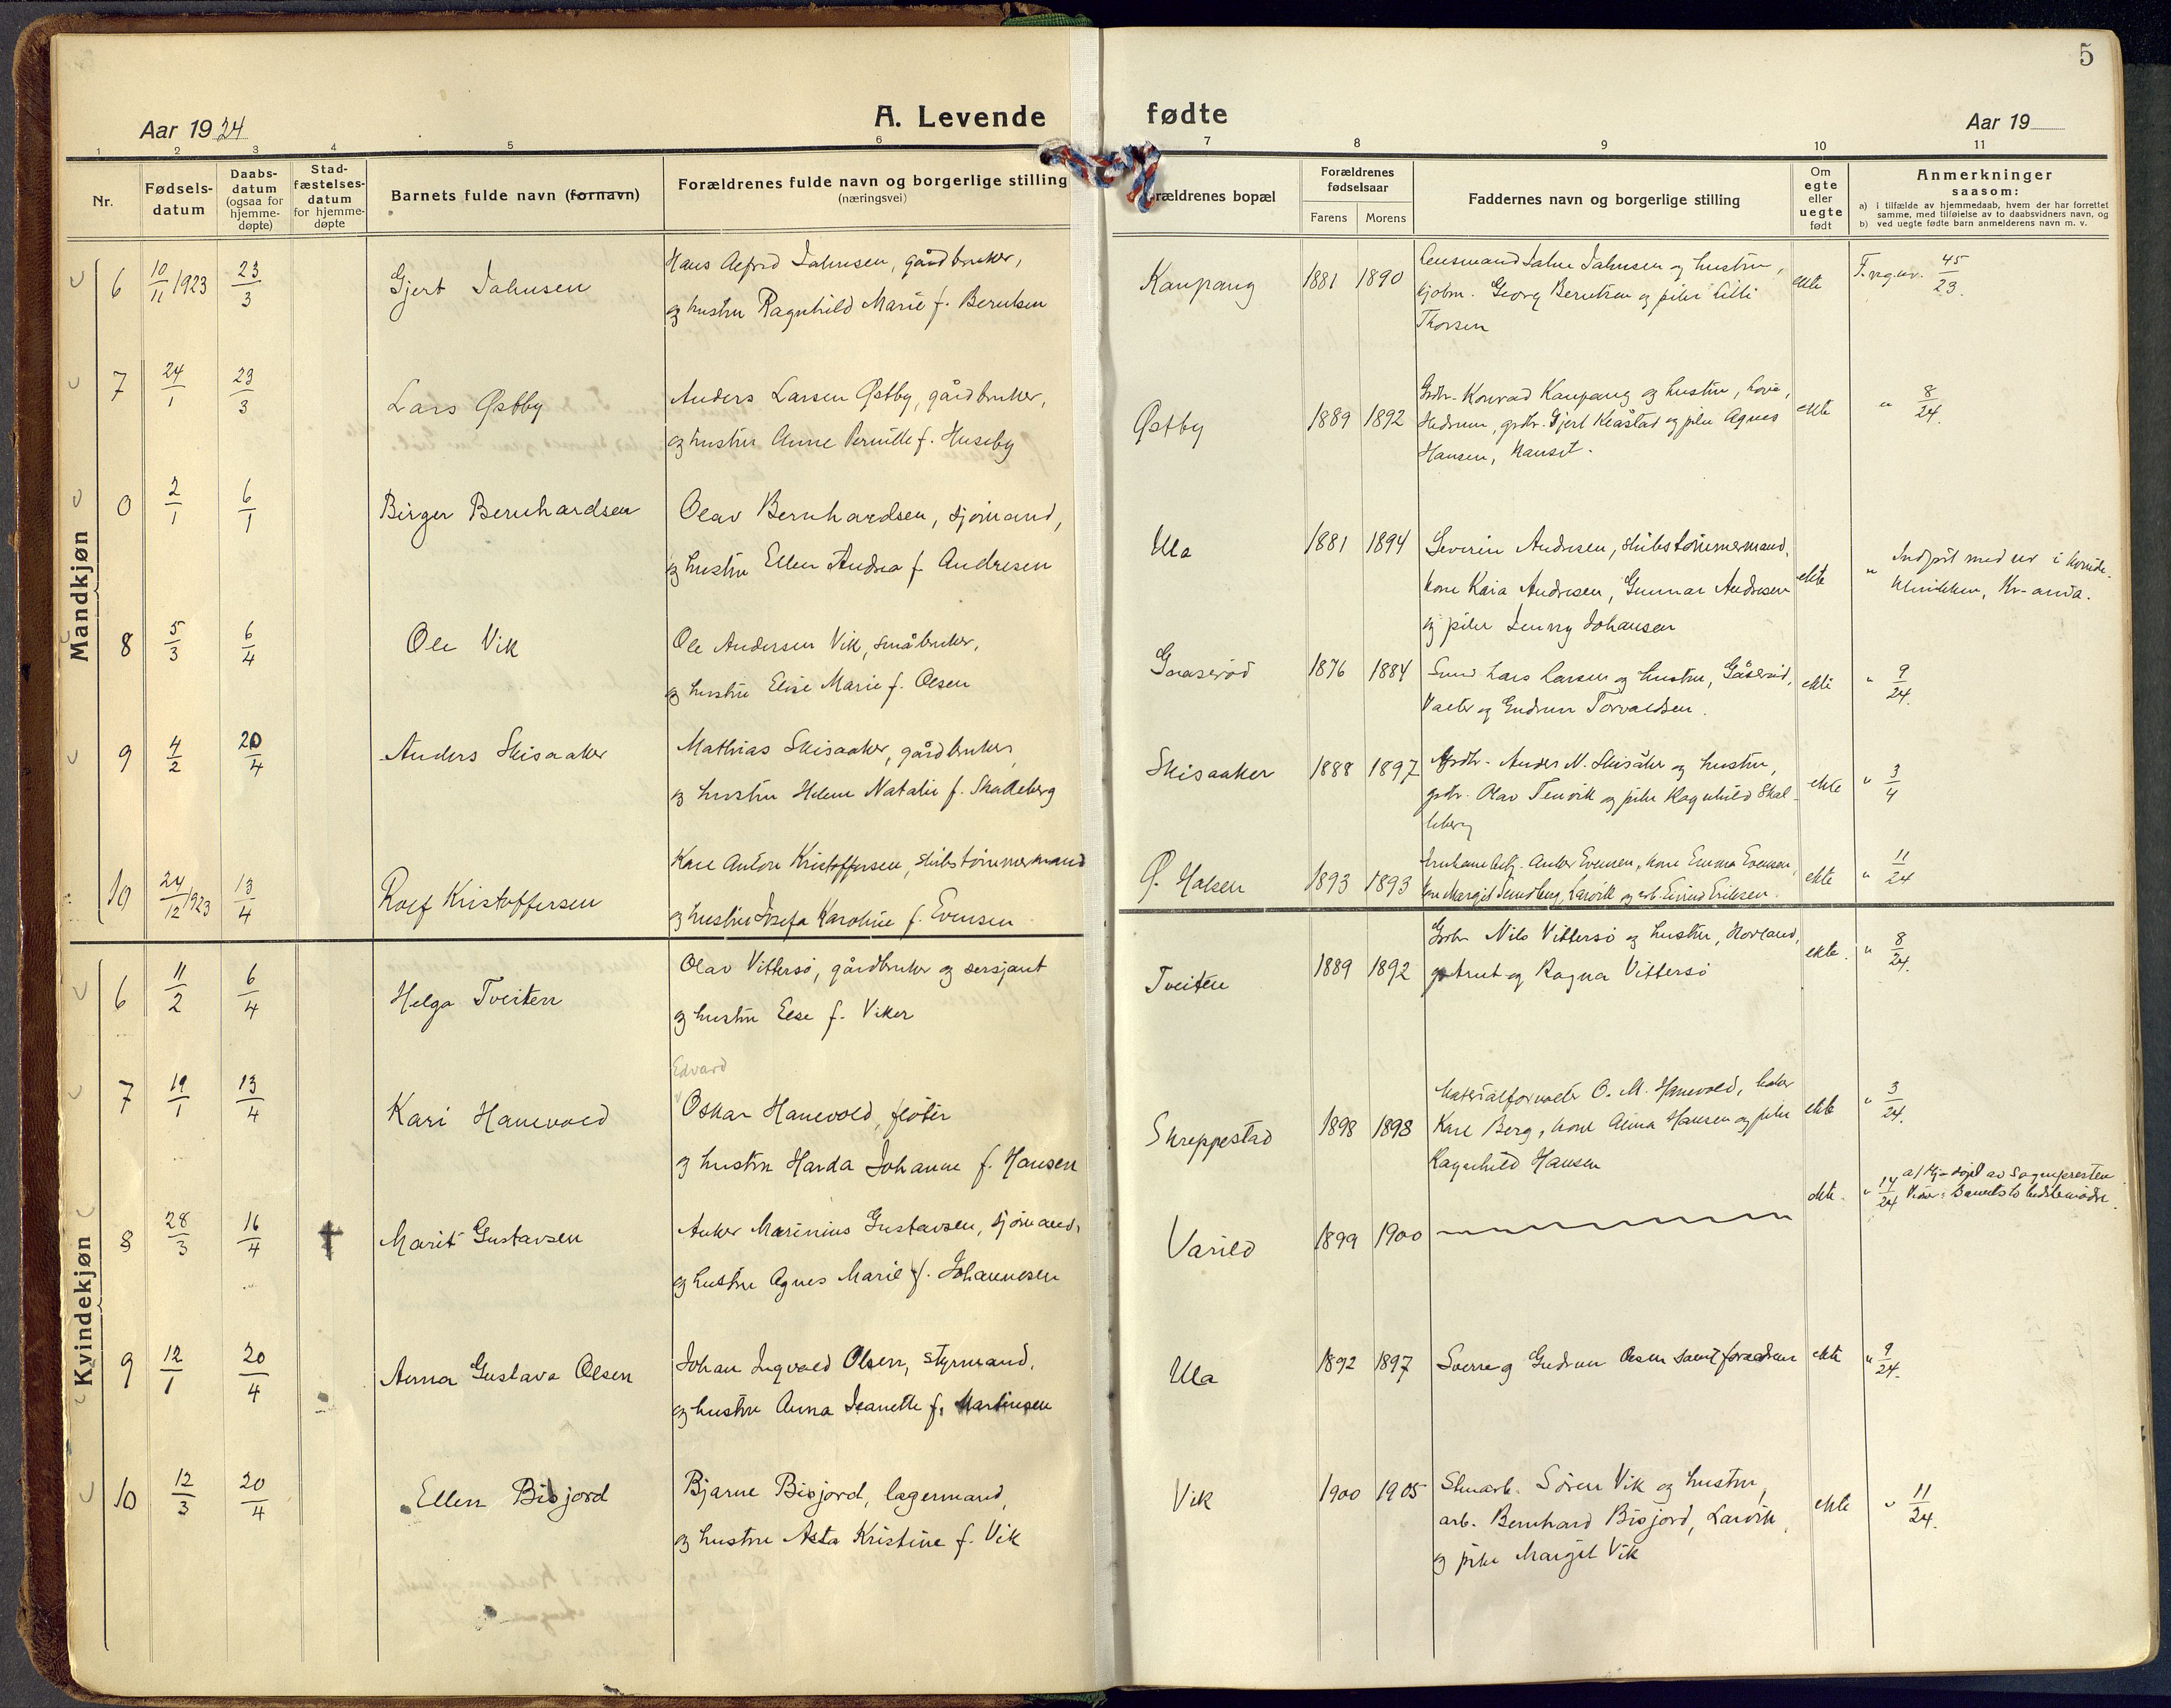 5
Aar 1924
A. Levende
fødte
Aar 19
1 2 3 4 5 6 7 8 9 10 11
Nr.
Fødsels-
datum
Daabs-
datum
(ogsaa for
hjemme-
døpte)
Stad-
fæstelses-
datum
for hjemme-
døpte
Barnets fulde navn (fornavn)
Forældrenes fulde navn og borgerlige stilling
(næringsvei)
rældrenes bopæl
Forældrenes
fødselsaar
Farens Morens
Faddernes navn og borgerlige stilling
Om
egte
eller
uegte
født
Anmerkninger
saasom:
a) i tilfælde av hjemmedaab, hvem der har forrettet
samme, med tilføielse av to daabsvidners navn, og
b) ved uegte fødte barn anmelderens navn m. v.
Mandkjøn
6 10/11 1923 23/3 Gjert Jahnsen
Hans Alfred Jahnsen, gårdbruker,
og hustru Ragnhild Marie f. Berntsen
Kaupang 1881 1890
Lensmand Jahn Jahnsen og hustru,
Georg Berntsen og pike Lilli
Thorsen
ekte 45/23.
7 24/1 23/3 Lars Østby
Anders Larsen Østby, gårdbruker,
og hustru Anne Pernille f. Huseby
Østby 1889 1892
Grdbr. Konrad Kaupang og hustru,
Hedrum, grdbr. Gjert Klåstad og pike Agnes
Hansen,
ekte " 8/24.
0 2/1 6/1 Birger Bernhardsen
Olav Bernhardsen, sjømand,
og hustru Ellen Andrea f. Andresen
Ula 1881 1894
Severin Andresen, skibstømmermand,
kone Kaia Andresen, Gunnar Andresen
og pike Jenny Johansen
ekte " Indført med nr i kvinde-
klinikken, Kr-ania.
8 5/3 6/4 Ole Vik
Ole Andersen Vik, småbruker,
og hustru Elise Marie f. Olsen
Gaaserød 1876 1884
Lars Larsen og hustru, Gåserød,
Valter og Gudrun Torvaldsen.
ekte " 9/24.
9 4/2 20/4 Anders Skisaaker
Mathias Skisaaker, gårdbruker,
og hustru Helene Natalie f. Skalleberg
Skisaaker 1888 1897
Grdbr. Anders N. Skisåker og hustru,
grdbr. Olav Tenvik og pike Ragnhild Skal-
leberg
ekte " 3/4
10 24/12 1923 13/4 Rolf Kristoffersen
Karl Anton Kristoffersen, skibstømmermand
og hustru Josefa Karoline f. Evensen
Ø. Halsen 1893 1893
Anker Evensen, kone Emma Evensen,
kone Margit Sundberg, Larvik og arb. Eivind Eriksen.
ekte " 11/24
Kvindekjøn
6 11/2 6/4 Helga Tveiten
Olav Vittersø, gårdbruker og sersjant
og hustru Else f. Viker
Tveiten 1889 1892
Grdbr Nils Vittersø og hustru,
Arnt og Ragna Vittersø
ekte. " 8/24.
7 19/1 13/4 Kari Hanevold
Edvard
Oskar Hanevold, fløter
og hustru Harda Johanne f. Hansen
Skreppestad 1898 1898
Materialforvalter O. M. Hanevold, baker
Karl Berg, kone Alma Hansen og pike
Ragnhild Hansen
ekte " 3/24.
8 28/3 16/4 † Marit Gustavsen
Anker Marinius Gustavsen, sjømand,
og hustru Agnes Marie f. Johannesen
Varild 1899 1900
ekte. " 14/24 a) Hj-døpt av Sognepresten
Vidner: Barnets to bedstemødre.
9 12/1 20/4 Anna Gustava Olsen
Johan Ingvald Olsen, styrmand,
og hustru Anna Jeanette f. Martinsen
Ula 1892 1897
Sverre og Gudrun Olsen samt forældrene
ekte " 9/24.
10 12/3 20/4 Ellen Bisjord
Bjarne Bisjord, lagermand,
og hustru Asta Kristine f. Vik
Vik 1900 1905
Stenarb. Søren Vik og hustru,
arb. Bernhard Bisjord, Larvik,
og pike Margit Vik
ekte " 11/24.